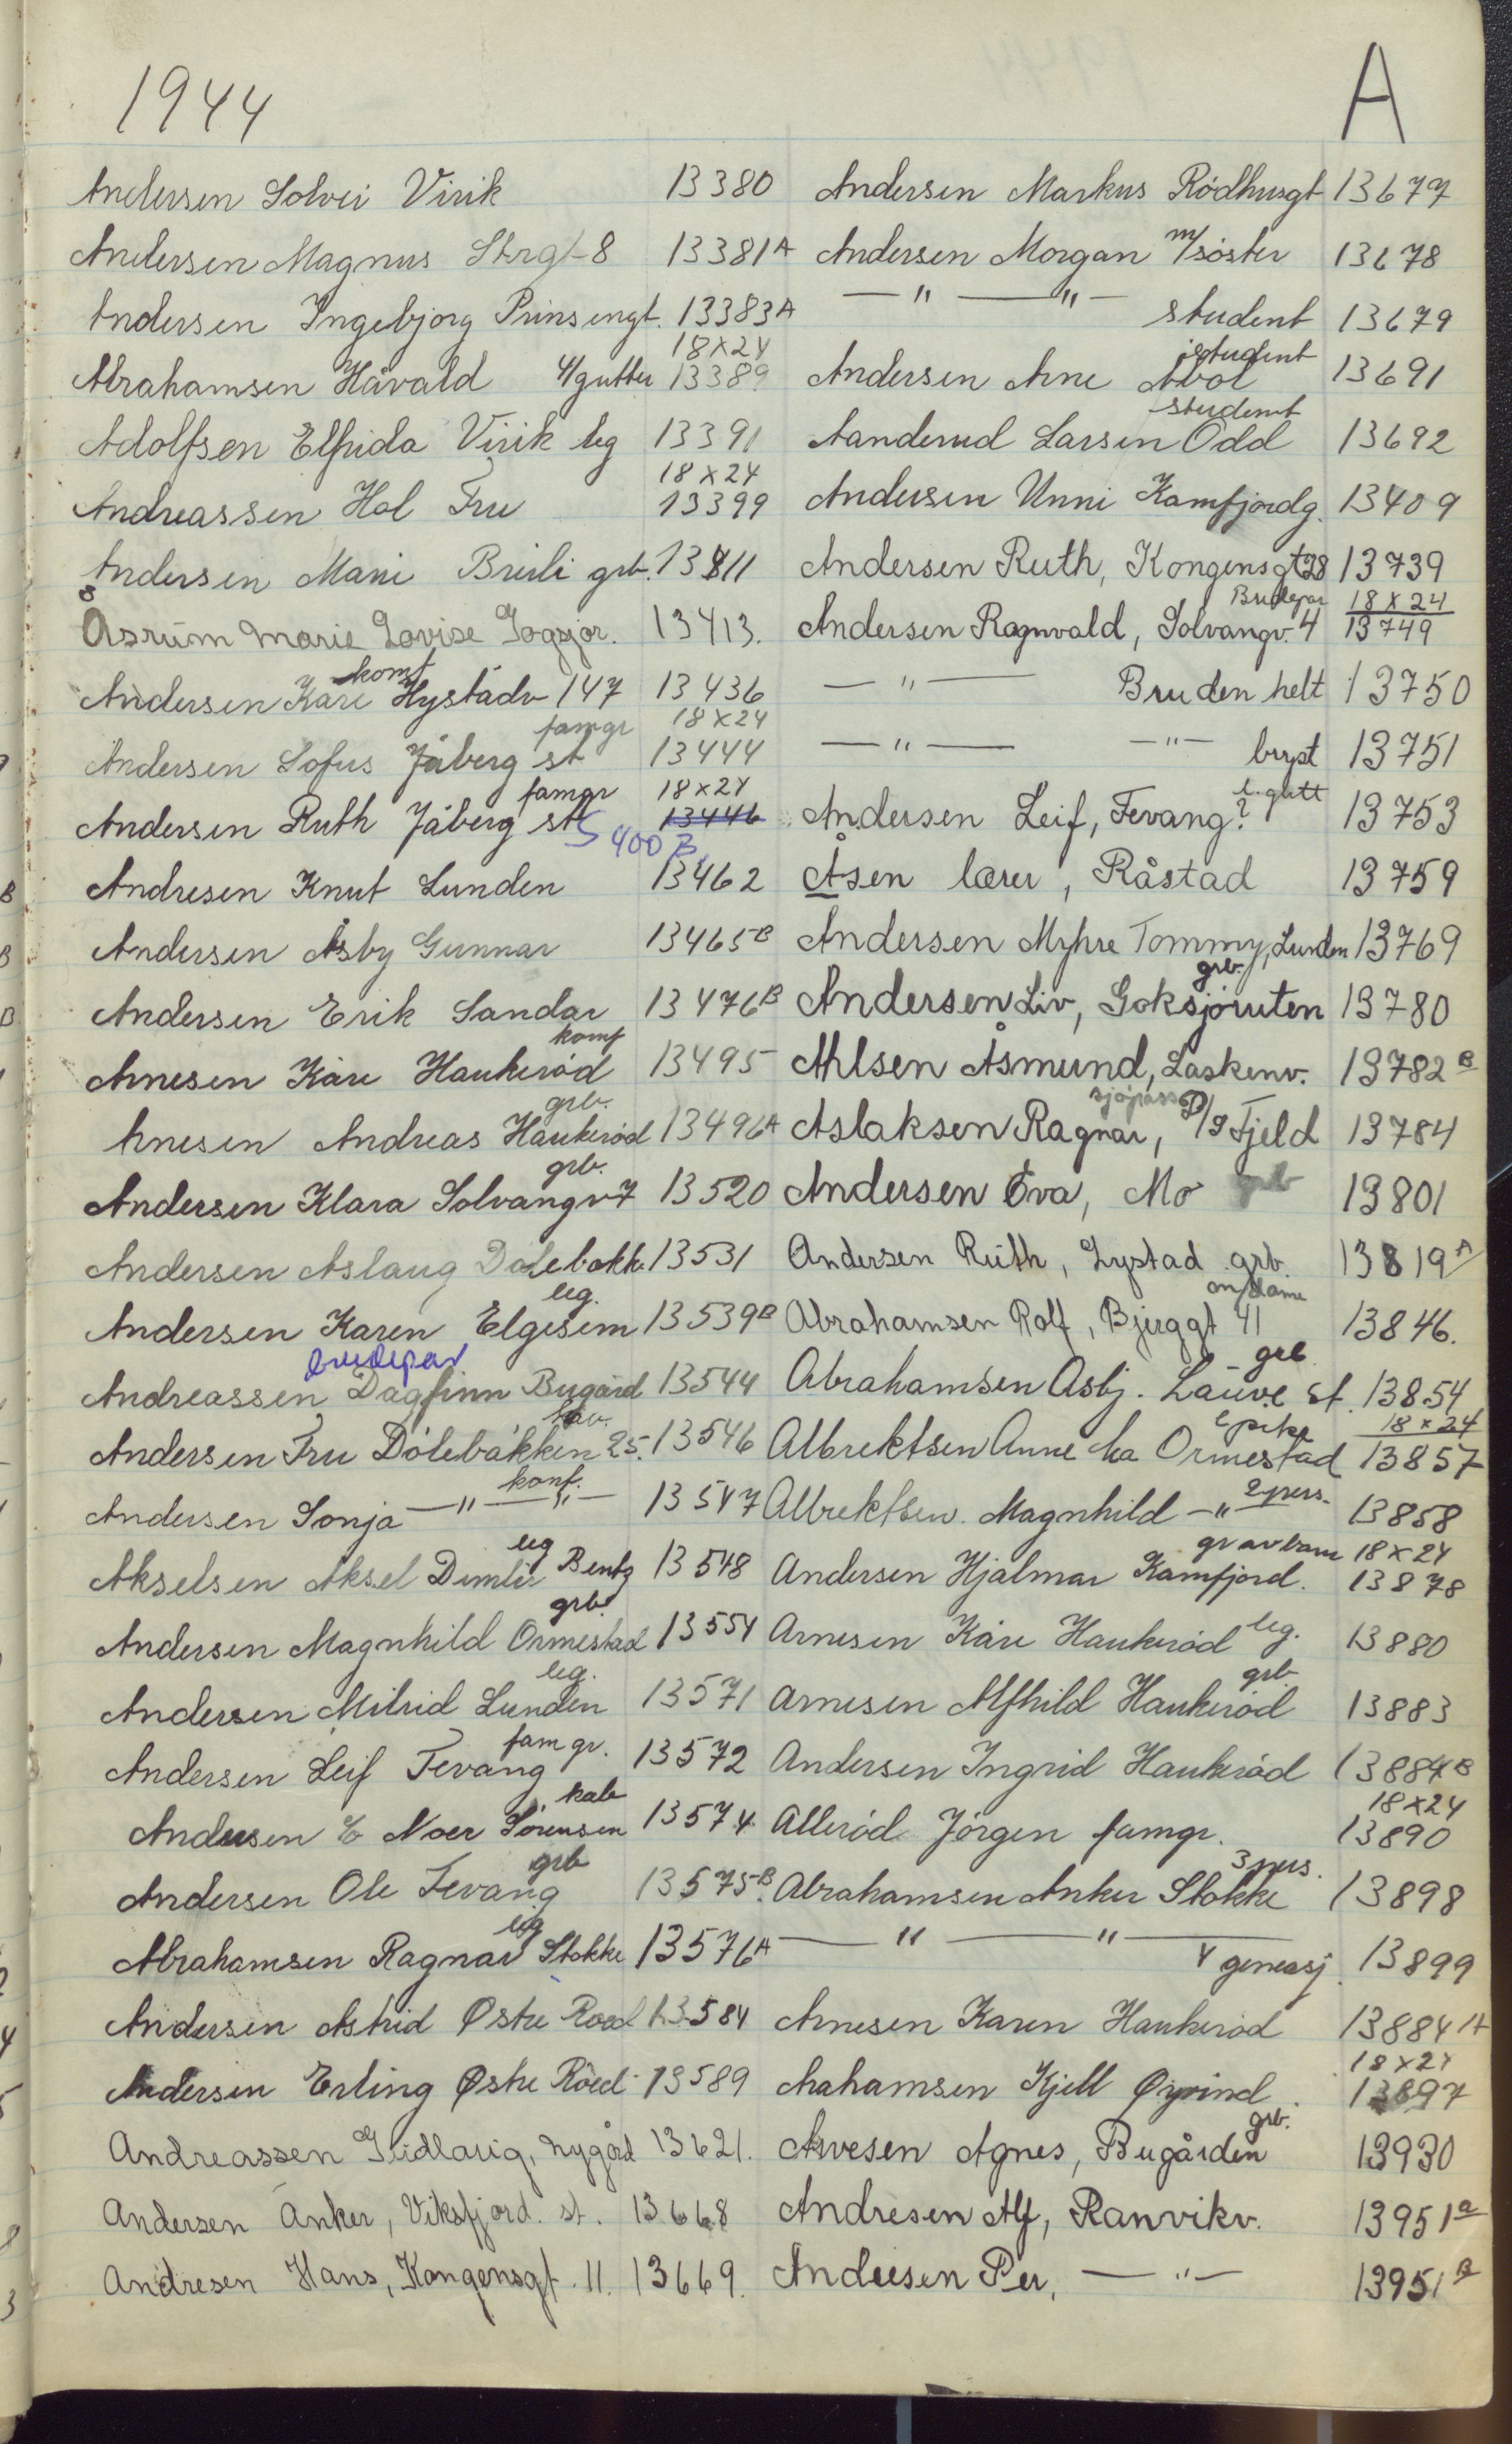 1944
A
Andersen Solvei Virik 13380
Andersen Magnus Strgt 8 13381A
Andersen Ingebjorg Prinsengt. 13383A
18x24
Abrahamsen Håvald 4/gutter 13389
Adolfsen Elfrida Virik leg 13391
18x24
Andreassen Hol Fru 13399
Andersen Marie Breili grb. 13811
Åsrum Marie Lovise Gogsjør. 13413.
konf
Andersen Kåre Hystadv 147 13436
famgr 18x24
Andersen Sofus Jåberg st 13444
famgr 18x24
Andersen Ruth Jåberg st 13446
5400 B
Andresen Knut Lunden 13462
Andersen Åsby Gunnar 13465B
Andersen Erik Sandar 13476B
konf
Arnesen Kåre Haukerød 13495
grb.
Arnesen Andreas Haukerød 13496A
grb.
Andersen Klara Solvangv 7 13520
Andersen Aslaug Dølebakk. 13531
leg.
Andersen Karen Elgesem 13539B
brudepar
Andreassen Dagfinn Bugård 13544
Andersen Fru Dølebakken 25. 13546
konf.
Andersen Sonja —"—"— 13547
leg
Akselsen Aksel Dimler Bentz 13548
grb.
Andersen Magnhild Ormestad 13554
leg.
Andersen Milrid Lunden 13571
fam gr.
Andersen Leif Fevang 13572
kab
Andersen % Noer Sørensen 13574
grb
Andersen Ole Fevang 13575B.
leg
Abrahamsen Ragnar Stokke 13576A
Andersen Astrid Østre Roed 13584
Andersen Erling Østre Röed 13589
Andreassen Gudlaug, Nygård 13621.
Andersen Anker, Viksfjord. st. 13668
Andresen Hans, Kongensgt. 11. 13669.
Andersen Markus Rådhusgt 13677
Andersen Morgan m/søster 13678
—"——"— student 13679
student
Andersen Arne Abol 13691
student
Aanderud Larsen Odd 13692
Andersen Unni Kamfjordg. 13409
Andersen Ruth, Kongensgt 28 13739
Brudepar 18x24
Andersen Ragnvald, Solvangv. 4 13749
—"— Bruden helt 13750
—"— —"— bryst 13751
l. gutt
Andersen Leif, Fevang? 13753
Åsen lærer, Råstad 13759
Andersen Myhre Tommy, Lunden 13769
grb.
Andersen Liv, Goksjøruten 13780
Ahlsen Åsmund, Laskenv. 13782B
sjøpass
Aslaksen Ragnar, D/S Fjeld 13784
Andersen Eva, Mo grb 13801
Andersen Ruth, Lystad grb. 13819A
m/dame
Abrahamsen Rolf, Bjerggt 41 13846.
grb
Abrahamsen Asbj. Lauve st. 13854
l pike 18x24
Albrektsen Anne Ma Ormestad 13857
2 pers.
Albrektsen Magnhild —"— 13858
gr av barn 18x24
Andersen Hjalmar Kamfjord. 13878
Arnesen Kåre Haukerød leg. 13880
grb
Arnesen Alfhild Haukerød 13883
Andersen Ingrid Haukerød 13884B
18x24
Allerød Jørgen famgr. 13890
3 pers.
Abrahamsen Anker Stokke 13898
—"——"— 4 generasj. 13899
Arnesen Karen Haukerød 13884A
18x24
Arahamsen Kjell Øyvind. 13897
grb.
Arvesen Agnes, Bugården 13930
Andresen Alf, Ranvikv. 13951a
Andresen Per, —"— 13951B